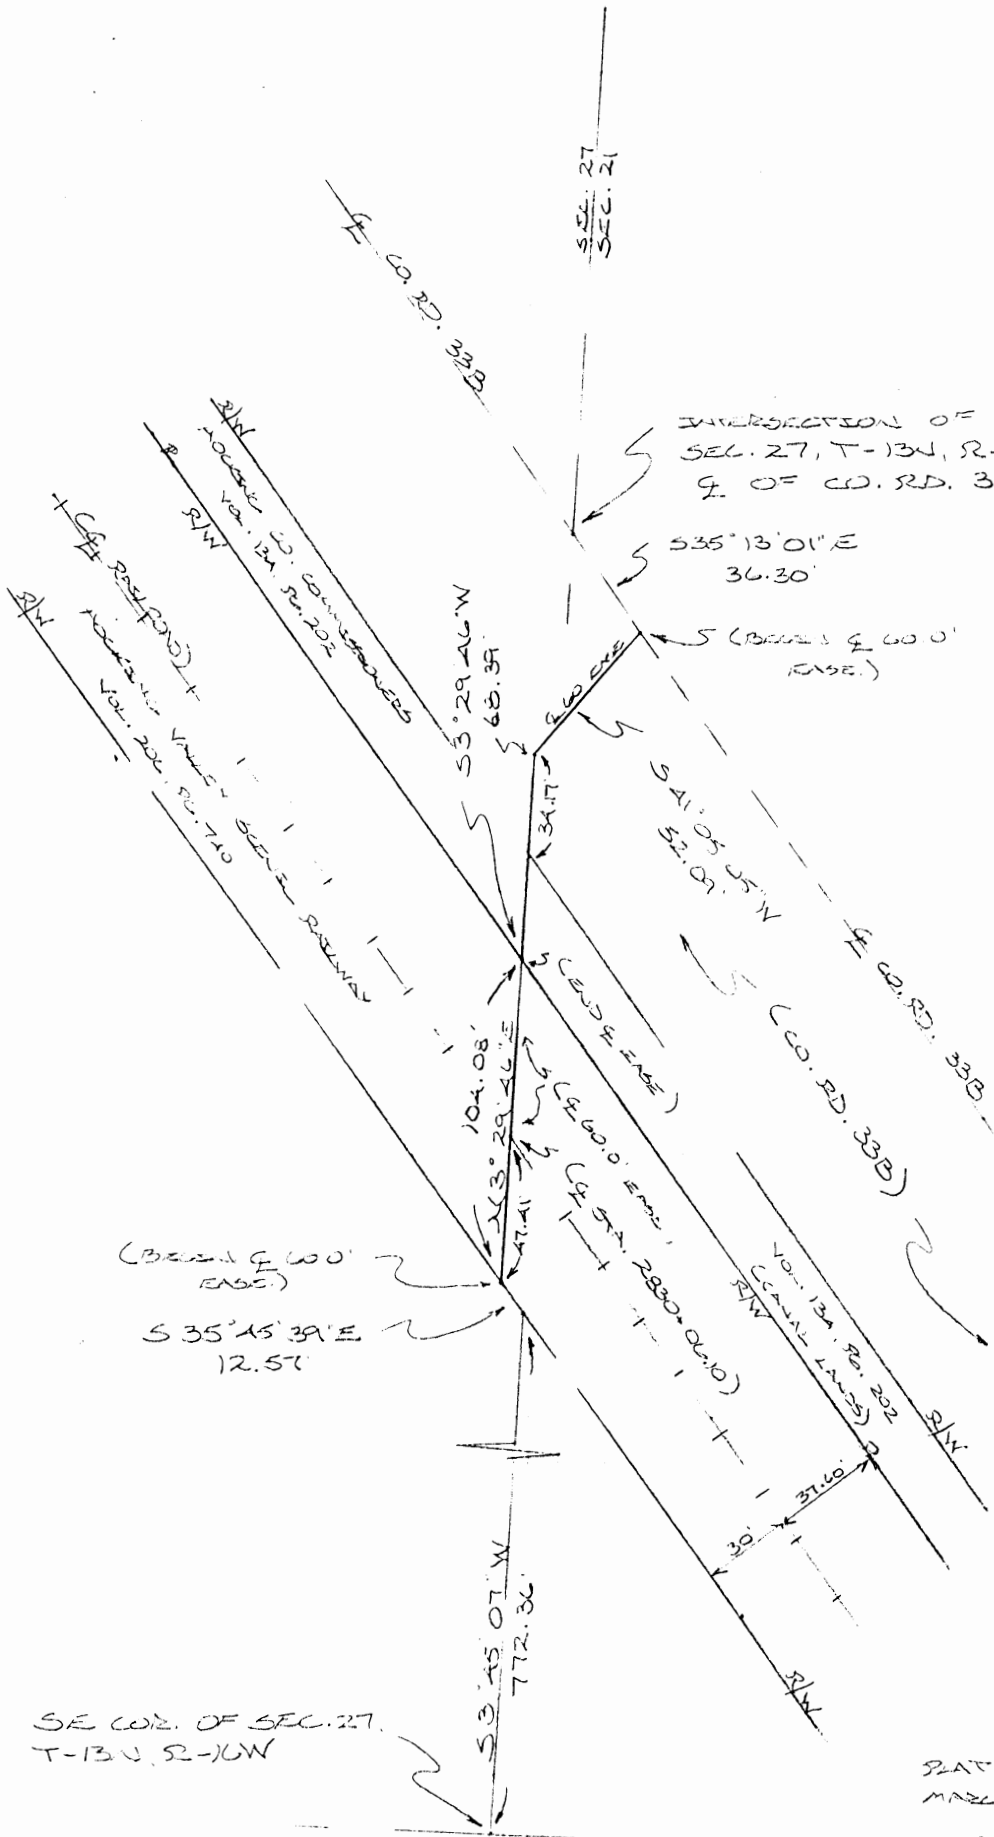 SEC. 27
SEC. 21
℄ CO. RD. 33B
INTERSECTION OF
SEC. 27, T-13N, R-
℄ OF CO. RD. 3
S35°13'01"E
36.30'
(BEGIN ℄ 60.0'
EASE.)
R/W
HOCKING CO. COMMISSIONERS
VOL. 13A, PG. 202
R/W
(℄ RAILROAD)
HOCKING VALLEY SCENIC RAILWAY
VOL. 206, PG. 710
R/W
S3°29'46"W
68.39'
℄ 60 EASE
34.17'
S41°05'05"W
52.09'
℄ CO. RD. 33B
(CO. RD. 33B)
(END ℄ EASE)
104.08'
N3°29'46"E
47.41'
(℄ 60.0' EASE.)
(℄ STA. 2830+06.10)
(BEGIN ℄ 60.0'
EASE.)
S35°45'39"E
12.57'
VOL. 13A, PG. 202
(CANAL LANDS)
R/W
R/W
37.60'
30'
R/W
S3°45'07"W
772.36'
SE COR. OF SEC. 27,
T-13N, R-16W
PLAT